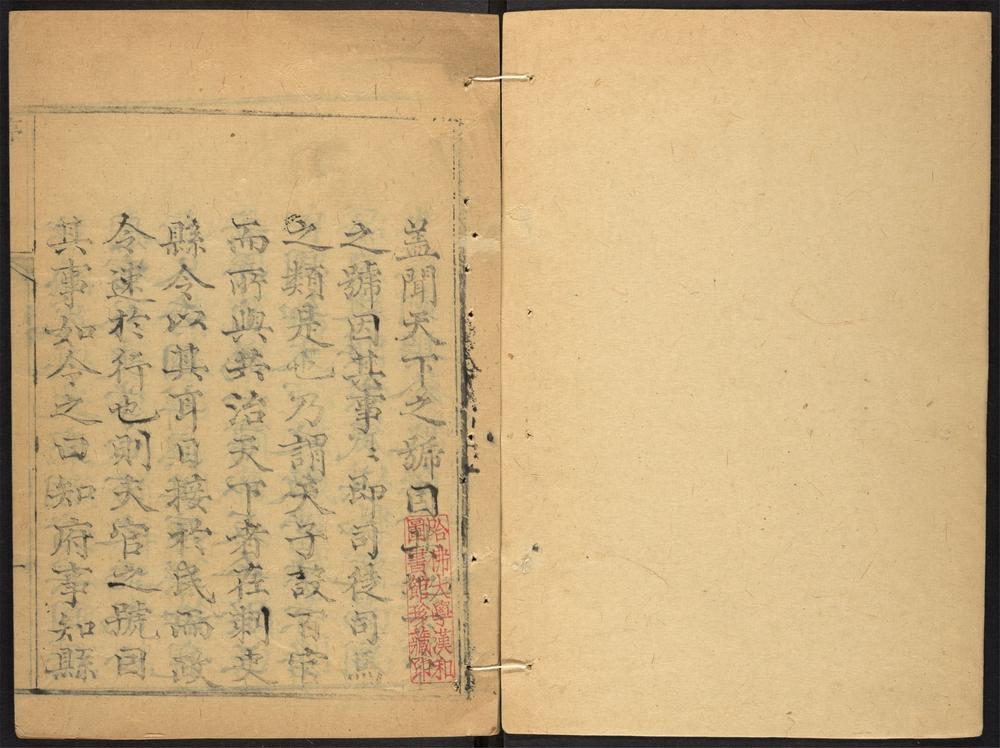 盖聞天下之號因
之號因其事〻即司徒司馬
之類是也乃謂天子設百官
而所與共治天下者在刺史
縣令以其耳目接於民而政
令速於行也則夫官之號因
其事如今之曰知府事知縣
哈佛大學漢和
圖書館珍藏印